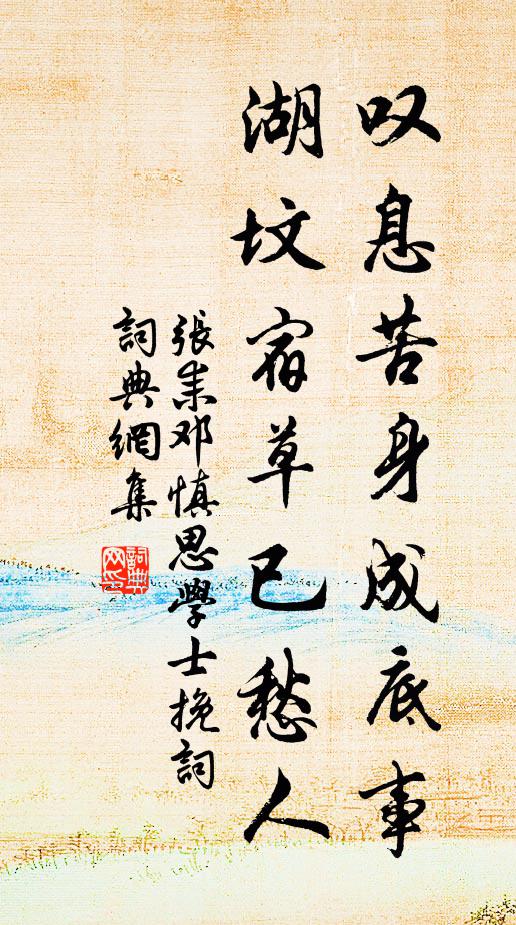 叹息苦身成底事
湖坟宿草已愁人
張耒邓慎思學士挽詞
詞典網集